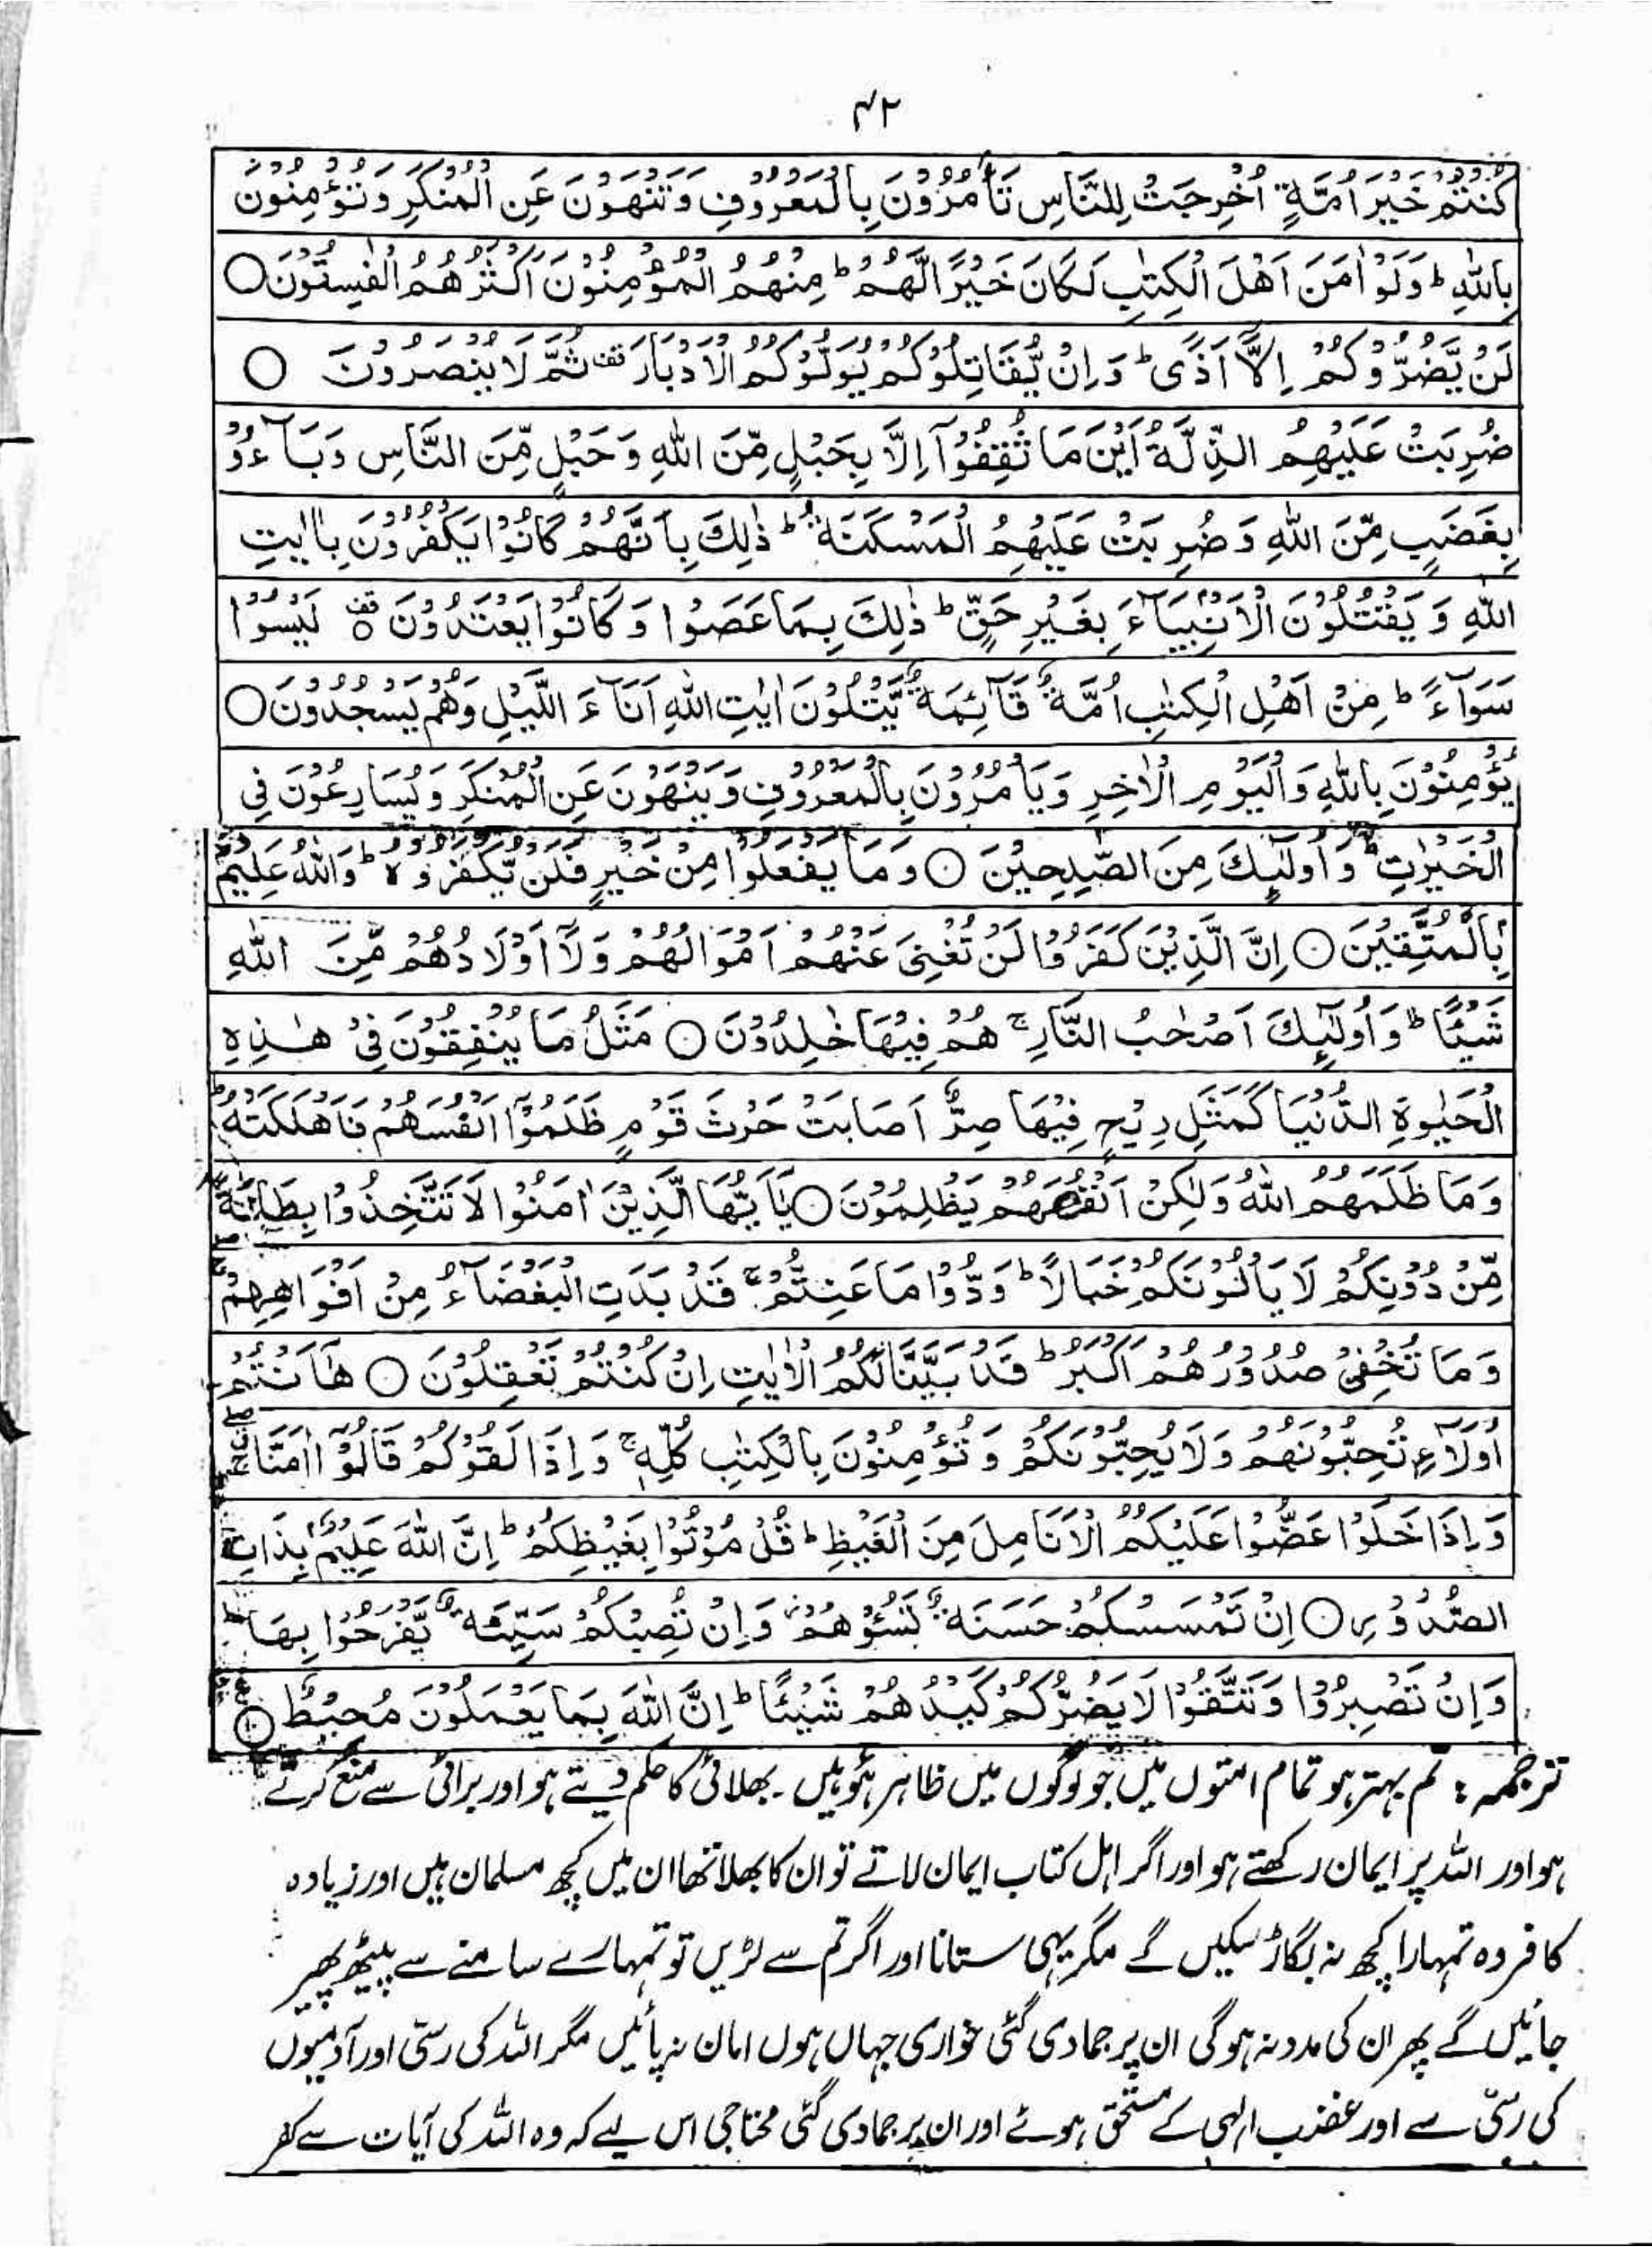 ۴۲
كُنْتُمْ خَيْرَ اُمَّةٍ اُخْرِجَتْ لِلنَّاسِ تَاْمُرُوْنَ بِالْمَعْرُوْفِ وَتَنْهَوْنَ عَنِ الْمُنْكَرِ وَتُؤْمِنُوْنَ
بِاللّٰهِ ؕ وَلَوْ اٰمَنَ اَهْلُ الْكِتٰبِ لَكَانَ خَيْرًا لَّهُمْ ؕ مِنْهُمُ الْمُؤْمِنُوْنَ اَكْثَرُهُمُ الْفٰسِقُوْنَ ○
لَنْ يَّضُرُّوْكُمْ اِلَّآ اَذًى ؕ وَاِنْ يُّقَاتِلُوْكُمْ يُوَلُّوْكُمُ الْاَدْبَارَ قف ثُمَّ لَا يُنْصَرُوْنَ ○
ضُرِبَتْ عَلَيْهِمُ الذِّلَّةُ اَيْنَ مَا ثُقِفُوْٓا اِلَّا بِحَبْلٍ مِّنَ اللّٰهِ وَحَبْلٍ مِّنَ النَّاسِ وَبَآءُوْ
بِغَضَبٍ مِّنَ اللّٰهِ وَضُرِبَتْ عَلَيْهِمُ الْمَسْكَنَةُ ؕ ذٰلِكَ بِاَنَّهُمْ كَانُوْا يَكْفُرُوْنَ بِاٰيٰتِ
اللّٰهِ وَيَقْتُلُوْنَ الْاَنْۢبِيَآءَ بِغَيْرِ حَقٍّ ؕ ذٰلِكَ بِمَا عَصَوْا وَكَانُوْا يَعْتَدُوْنَ ○ قف لَيْسُوْا
سَوَآءً ؕ مِنْ اَهْلِ الْكِتٰبِ اُمَّةٌ قَآئِمَةٌ يَّتْلُوْنَ اٰيٰتِ اللّٰهِ اٰنَآءَ الَّيْلِ وَهُمْ يَسْجُدُوْنَ ○
يُؤْمِنُوْنَ بِاللّٰهِ وَالْيَوْمِ الْاٰخِرِ وَيَاْمُرُوْنَ بِالْمَعْرُوْفِ وَيَنْهَوْنَ عَنِ الْمُنْكَرِ وَيُسَارِعُوْنَ فِي
الْخَيْرٰتِ ؕ وَاُولٰٓئِكَ مِنَ الصّٰلِحِيْنَ ○ وَمَا يَفْعَلُوْا مِنْ خَيْرٍ فَلَنْ يُّكْفَرُوْهُ ؕ وَاللّٰهُ عَلِيْمٌۢ
بِالْمُتَّقِيْنَ ○ اِنَّ الَّذِيْنَ كَفَرُوْا لَنْ تُغْنِىَ عَنْهُمْ اَمْوَالُهُمْ وَلَآ اَوْلَادُهُمْ مِّنَ اللّٰهِ
شَيْئًا ؕ وَاُولٰٓئِكَ اَصْحٰبُ النَّارِ ۚ هُمْ فِيْهَا خٰلِدُوْنَ ○ مَثَلُ مَا يُنْفِقُوْنَ فِيْ هٰذِهِ
الْحَيٰوةِ الدُّنْيَا كَمَثَلِ رِيْحٍ فِيْهَا صِرٌّ اَصَابَتْ حَرْثَ قَوْمٍ ظَلَمُوْٓا اَنْفُسَهُمْ فَاَهْلَكَتْهُ ؕ
وَمَا ظَلَمَهُمُ اللّٰهُ وَلٰكِنْ اَنْفُسَهُمْ يَظْلِمُوْنَ ○ يٰٓاَيُّهَا الَّذِيْنَ اٰمَنُوْا لَا تَتَّخِذُوْا بِطَانَةً
مِّنْ دُوْنِكُمْ لَا يَاْلُوْنَكُمْ خَبَالًا ؕ وَدُّوْا مَا عَنِتُّمْ ۚ قَدْ بَدَتِ الْبَغْضَآءُ مِنْ اَفْوَاهِهِمْ
وَمَا تُخْفِيْ صُدُوْرُهُمْ اَكْبَرُ ؕ قَدْ بَيَّنَّا لَكُمُ الْاٰيٰتِ اِنْ كُنْتُمْ تَعْقِلُوْنَ ○ هٰٓاَنْتُمْ
اُولَآءِ تُحِبُّوْنَهُمْ وَلَا يُحِبُّوْنَكُمْ وَتُؤْمِنُوْنَ بِالْكِتٰبِ كُلِّهٖ ۚ وَاِذَا لَقُوْكُمْ قَالُوْٓا اٰمَنَّا
وَاِذَا خَلَوْا عَضُّوْا عَلَيْكُمُ الْاَنَامِلَ مِنَ الْغَيْظِ ؕ قُلْ مُوْتُوْا بِغَيْظِكُمْ ؕ اِنَّ اللّٰهَ عَلِيْمٌۢ بِذَاتِ
الصُّدُوْرِ ○ اِنْ تَمْسَسْكُمْ حَسَنَةٌ تَسُؤْهُمْ وَاِنْ تُصِبْكُمْ سَيِّئَةٌ يَّفْرَحُوْا بِهَا
وَاِنْ تَصْبِرُوْا وَتَتَّقُوْا لَا يَضُرُّكُمْ كَيْدُهُمْ شَيْئًا ؕ اِنَّ اللّٰهَ بِمَا يَعْمَلُوْنَ مُحِيْطٌ ○
ترجمہ: تم بہتر ہو تمام امتوں میں جو لوگوں میں ظاہر ہوئیں۔ بھلائی کا حکم دیتے ہو اور برائی سے منع کرتے
ہو اور اللہ پر ایمان رکھتے ہو اور اگر اہل کتاب ایمان لاتے تو ان کا بھلا تھا ان میں کچھ مسلمان ہیں اور زیادہ
کافر وہ تمہارا کچھ نہ بگاڑ سکیں گے مگر یہی ستانا اور اگر تم سے لڑیں تو تمہارے سامنے سے پیٹھ پھیر
جائیں گے پھر ان کی مدد نہ ہوگی ان پر جمادی گئی خواری جہاں ہوں امان نہ پائیں مگر اللہ کی رسّی اور آدمیوں
کی رسّی سے اور غضب الہی کے مستحق ہوئے اور ان پر جمادی گئی محتاجی اس لیے کہ وہ اللہ کی آیات سے کفر